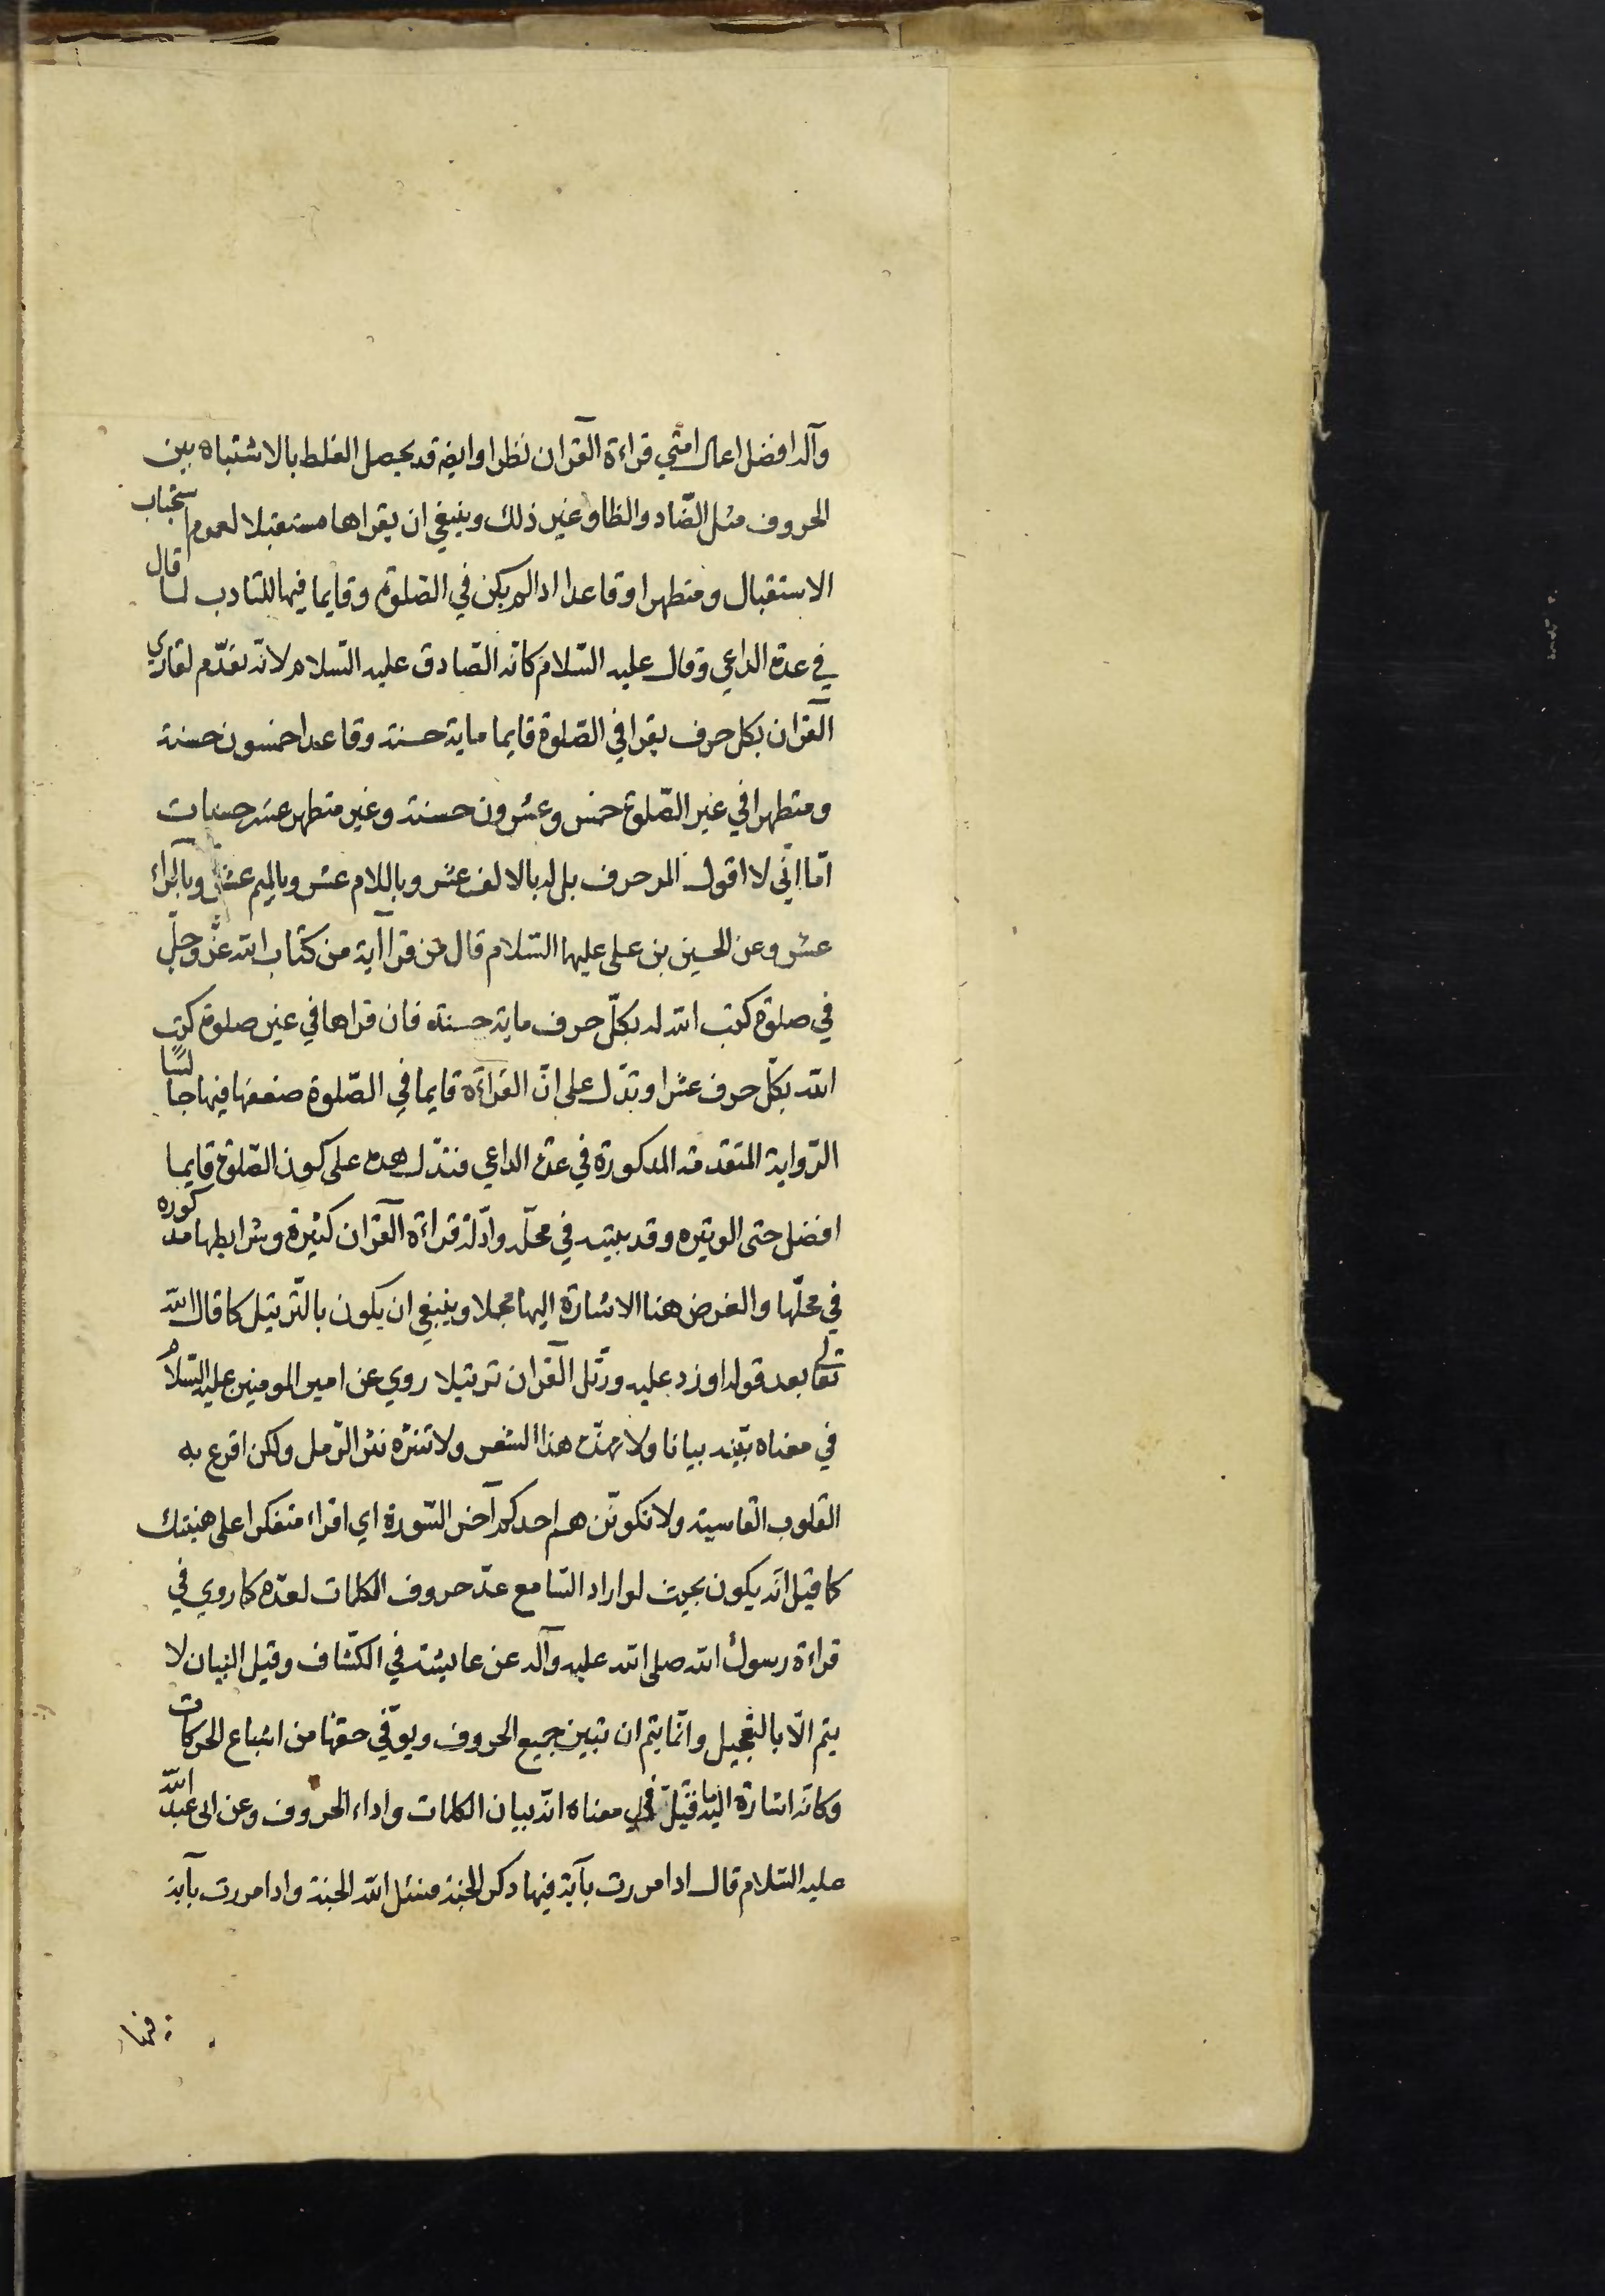 وآله افضل اعمال امتي قراءة القرآن نظرا وايضا قد يحصل الغلط بالاشتباه بين
الحروف مثل الضّاد والظا وغير ذلك وينبغي ان يقراها مستقبلا لعموم استحباب
الاستقبال ومتطهرا وقاعدا اذا لم يكن في الصلوة وقايما فيها للتادب لما قال
في عدة الداعي وقال عليه السّلام كانه الصّادق عليه السّلام لانّه تقدّم لقاري
القرآن بكل حرف يقرا في الصّلوة قايما ماية حسنة وقاعدا خمسون حسنة
ومتطهرا في غير الصّلوة خمس وعشرون حسنة وغير متطهر عشر حسنات
امّا انّي لا اقول المر حرف بل له بالالف عشر وباللام عشر وبالميم عشر وبالراء
عشر وعن الحسين بن علي عليهما السّلام قال من قرا آية من كتاب الله عزّ وجلّ
في صلوة كتب الله له بكلّ حرف ماية حسنة فان قراها في غير صلوة كتب
الله بكلّ حرف عشرا وتدّل على انّ القراءة قايما في الصّلوة ضعفها فيها جالسًا
الرّواية المتقدمة المذكورة في عدة الداعي فتدّل هذه على كون الصّلوة قايما
افضل حتى الوتيره وقد بينته في محلّه وادّلة قراءة القرآن كثيرة وشرايطها مذكوره
في محلّها والغرض هنا الاشارة اليها مجملا وينبغي ان يكون بالتّرتيل كما قال الله
تعالى بعد قوله او زد عليه ورتّل القرآن ترتيلا روي عن امير المومنين عليه السّلام
في معناه بيّنه بيانا ولا تهذّه هذا الشعر ولا تنثره نثر الرّمل ولكن اقرع به
القلوب القاسية ولا تكوننّ هم احدكم آخر السّورة اي اقراء متفكرا على هينتك
كما قيل انّه يكون بحيث لو اراد السّامع عدّ حروف الكلمات لعدّه كما روي في
قراءة رسول الله صلى الله عليه وآله عن عايشة في الكشّاف وقيل البيان لا
يتم الّا بالتعجيل وانّما يتم ان تبين جميع الحروف ويوّفي حقها من اشباع الحركات
وكانه اشارة اليه ما قيل في معناه انّه بيان الكلمات واداء الحروف وعن ابي عبد الله
عليه السّلام قال اذا مررت بآية فيها ذكر الجنة فسئل الله الجنة واذا مررت بآية
فيها